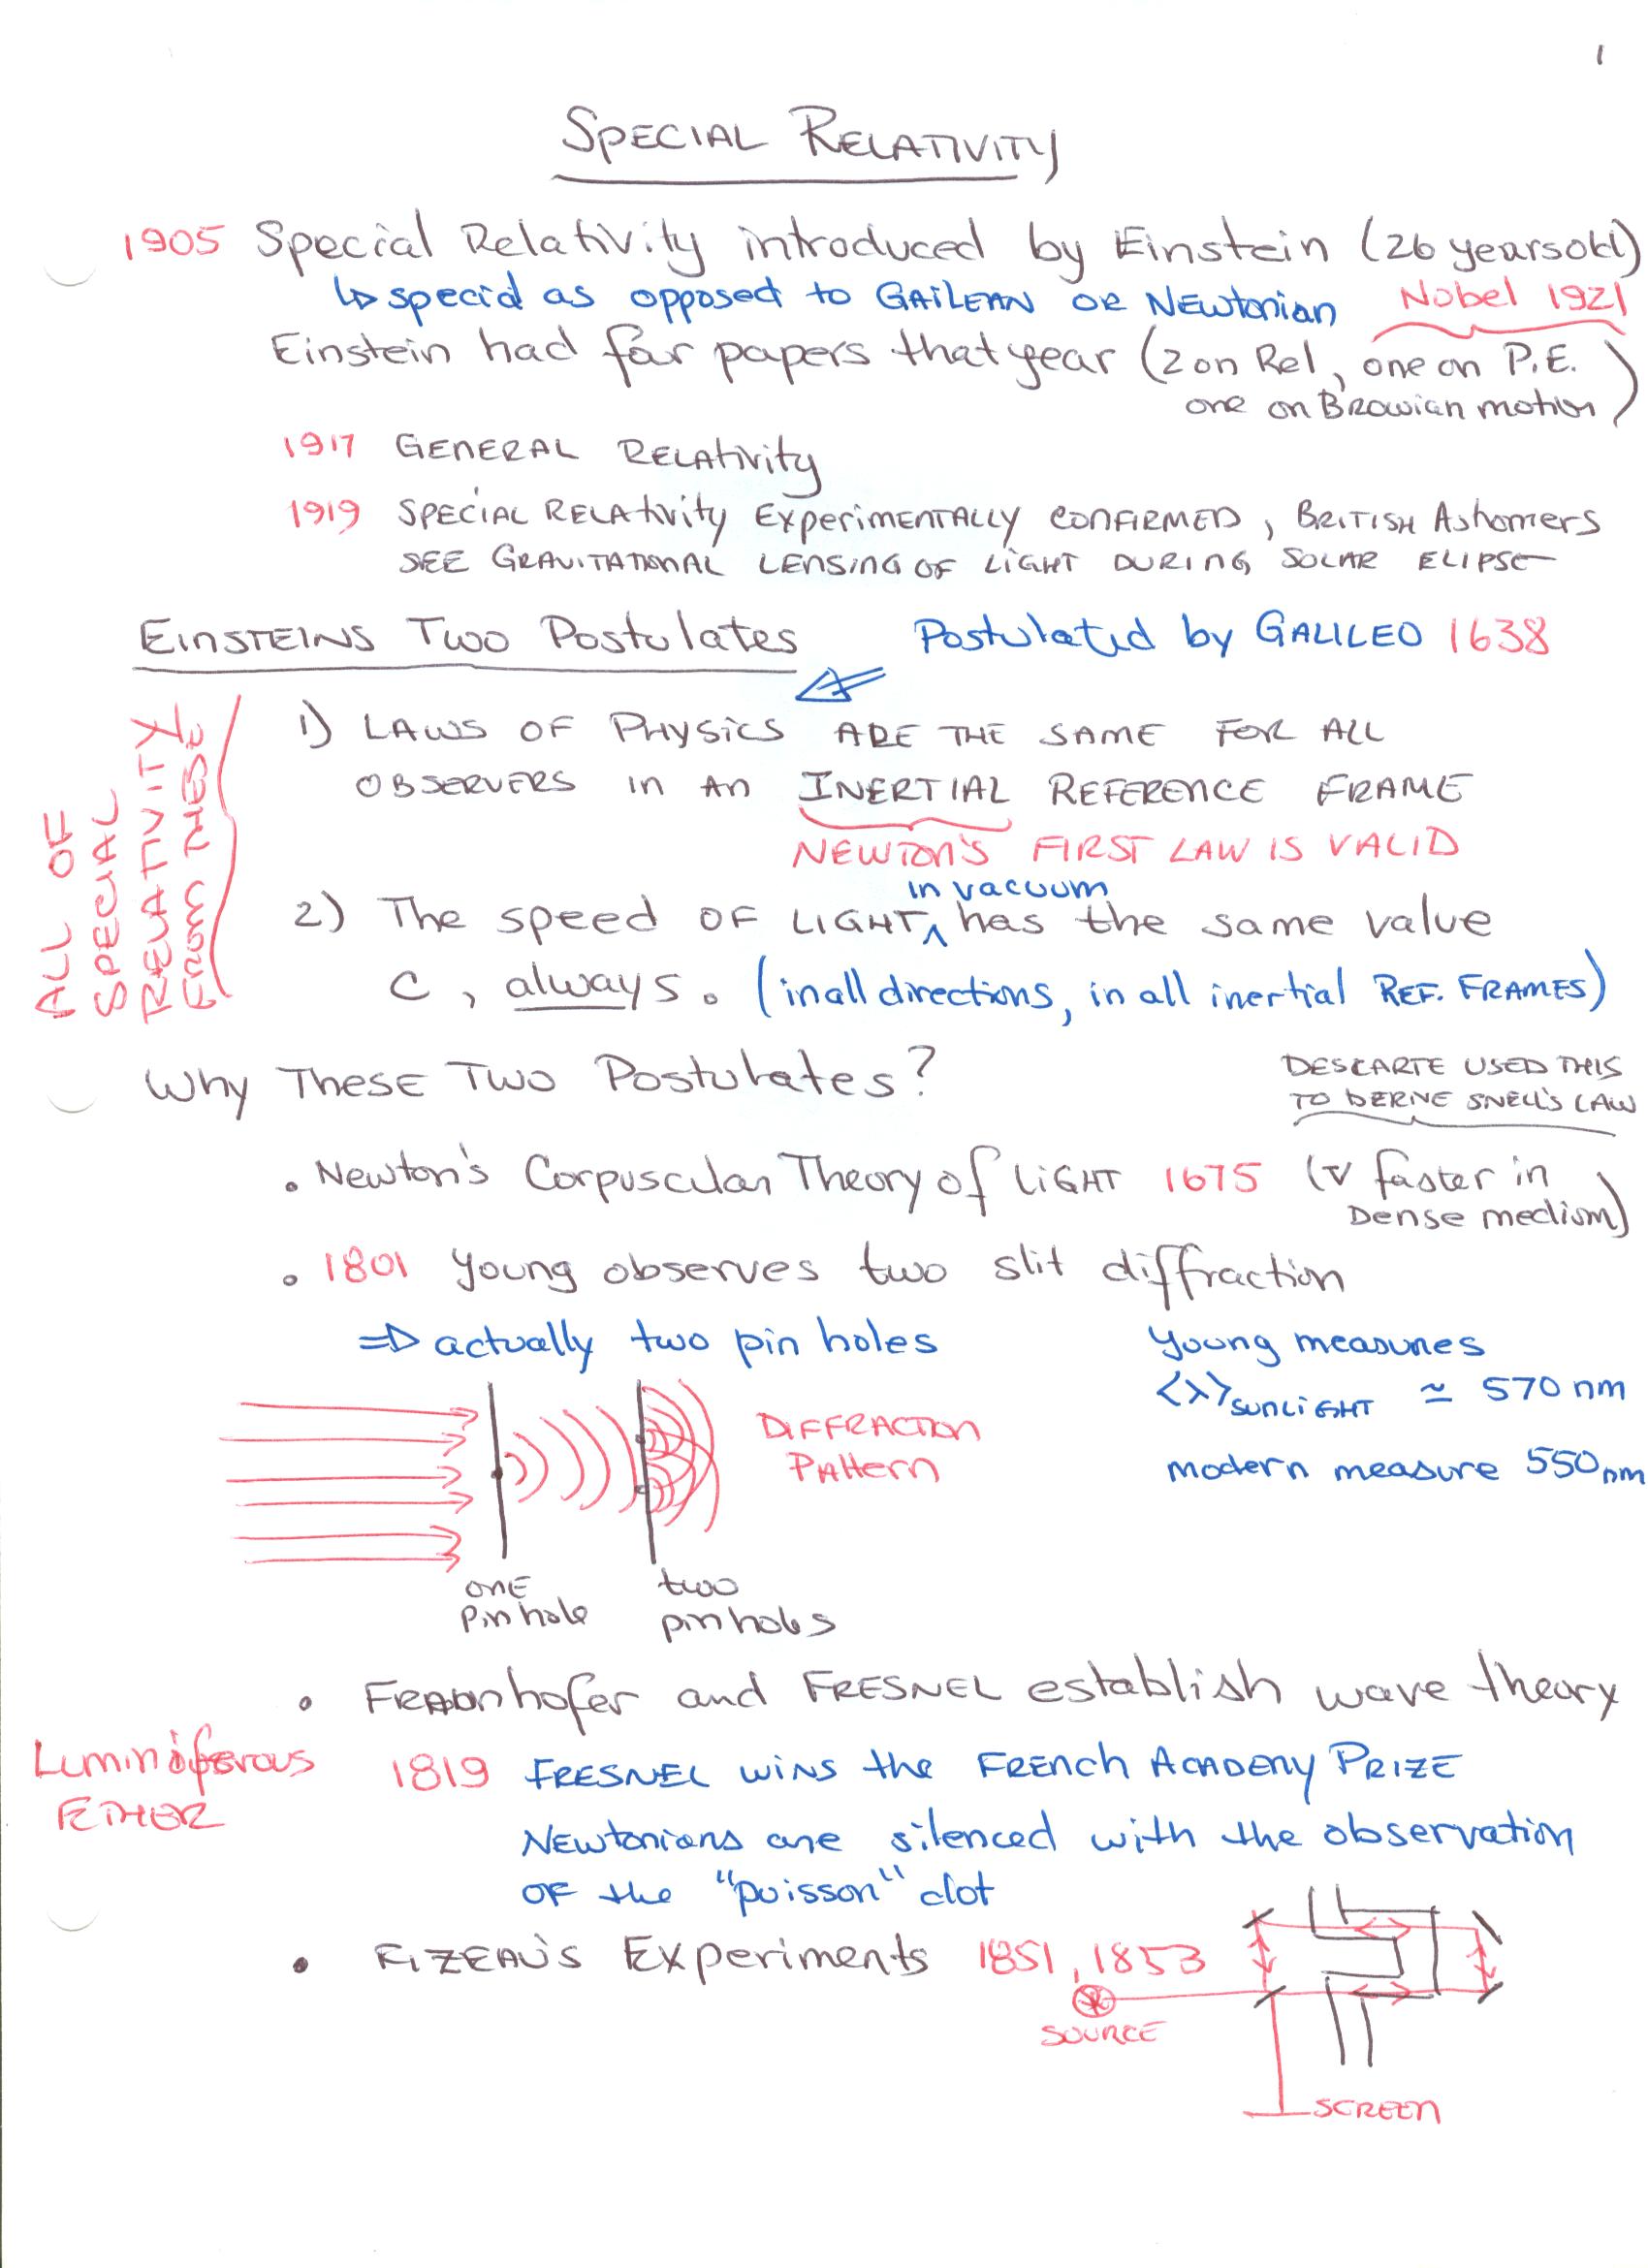 1
SPECIAL RELATIVITY
1905 Special Relativity introduced by Einstein (26 years old)
↳ special as opposed to GAILEAN OR NEWtonian Nobel 1921
Einstein had four papers that year (2 on Rel, one on P.E.
one on Browian motion)
1917 GENERAL RELAtivity
1919 SPECIAL RELAtivity ExperimENTALLY CONFIRMED, BRITISH Astromers
SEE GRAVITATIONAL LENSING OF LIGHT DURING SOLAR ELIPSE
EINSTEINS Two Postulates Postulated by GALILEO 1638
1) LAWS OF PHYSICS ARE THE SAME FOR ALL
OBSERVERS IN AN INERTIAL REFERENCE FRAME
NEWTON'S FIRST LAW IS VALID
in vacuum
2) The speed OF LIGHT ^ has the same value
C, always. (in all directions, in all inertial REF. FRAMES)
ALL OF
SPECIAL
RELATIVITY
FROM THESE
Why THESE Two Postulates?
DESCARTE USED THIS
TO DERIVE SNELL'S LAW
• Newton's Corpuscular Theory of LIGHT 1675 (v faster in
Dense medium)
• 1801 Young observes two slit diffraction
⇒ actually two pin holes
Young measures
<λ>SUNLIGHT ≃ 570 nm
modern measure 550 nm
DIFFRACTION
PAttern
ONE
Pin hole
two
pin holes
• Fraunhofer and FRESNEL establish wave theory
Luminiferous
ETHER
1819 FRESNEL wins the FRENCH ACADEMY PRIZE
NEWtonians are silenced with the observation
OF the "poisson" dot
• FIZEAU'S Experiments 1851, 1853
SOURCE
SCREEN